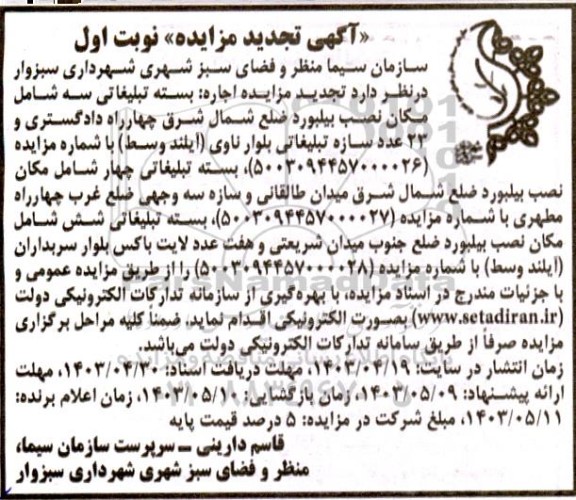 «آگهی تجدید مزایده» نوبت اول
سازمان سیما منظر و فضای سبز شهری شهرداری سبزوار
درنظر دارد تجدید مزایده اجاره: بسته تبلیغاتی سه شامل
مکان نصب بیلبورد ضلع شمال شرق چهارراه دادگستری و
۲۲ عدد سازه تبلیغاتی بلوار ناوی (آیلند وسط) با شماره مزایده
(۵۰۰۳۰۹۴۴۵۷۰۰۰۰۲۶)، بسته تبلیغاتی چهار شامل مکان
نصب بیلبورد ضلع شمال شرق میدان طالقانی و سازه سه وجهی ضلع غرب چهارراه
مطهری با شماره مزایده (۵۰۰۳۰۹۴۴۵۷۰۰۰۰۲۷)، بسته تبلیغاتی شش شامل
مکان نصب بیلبورد ضلع جنوب میدان شریعتی و هفت عدد لایت باکس بلوار سربداران
(آیلند وسط) با شماره مزایده (۵۰۰۳۰۹۴۴۵۷۰۰۰۰۲۸) را از طریق مزایده عمومی و
با جزئیات مندرج در اسناد مزایده، با بهره‌گیری از سامانه تدارکات الکترونیکی دولت
(www.setadiran.ir) بصورت الکترونیکی اقدام نماید. ضمناً کلیه مراحل برگزاری
مزایده صرفاً از طریق سامانه تدارکات الکترونیکی دولت می‌باشد.
زمان انتشار در سایت: ۱۴۰۳/۰۴/۱۹، مهلت دریافت اسناد: ۱۴۰۳/۰۴/۳۰، مهلت
ارائه پیشنهاد: ۱۴۰۳/۰۵/۰۹، زمان بازگشایی: ۱۴۰۳/۰۵/۱۰، زمان اعلام برنده:
۱۴۰۳/۰۵/۱۱، مبلغ شرکت در مزایده: ۵ درصد قیمت پایه
قاسم دارینی ــ سرپرست سازمان سیما،
منظر و فضای سبز شهری شهرداری سبزوار